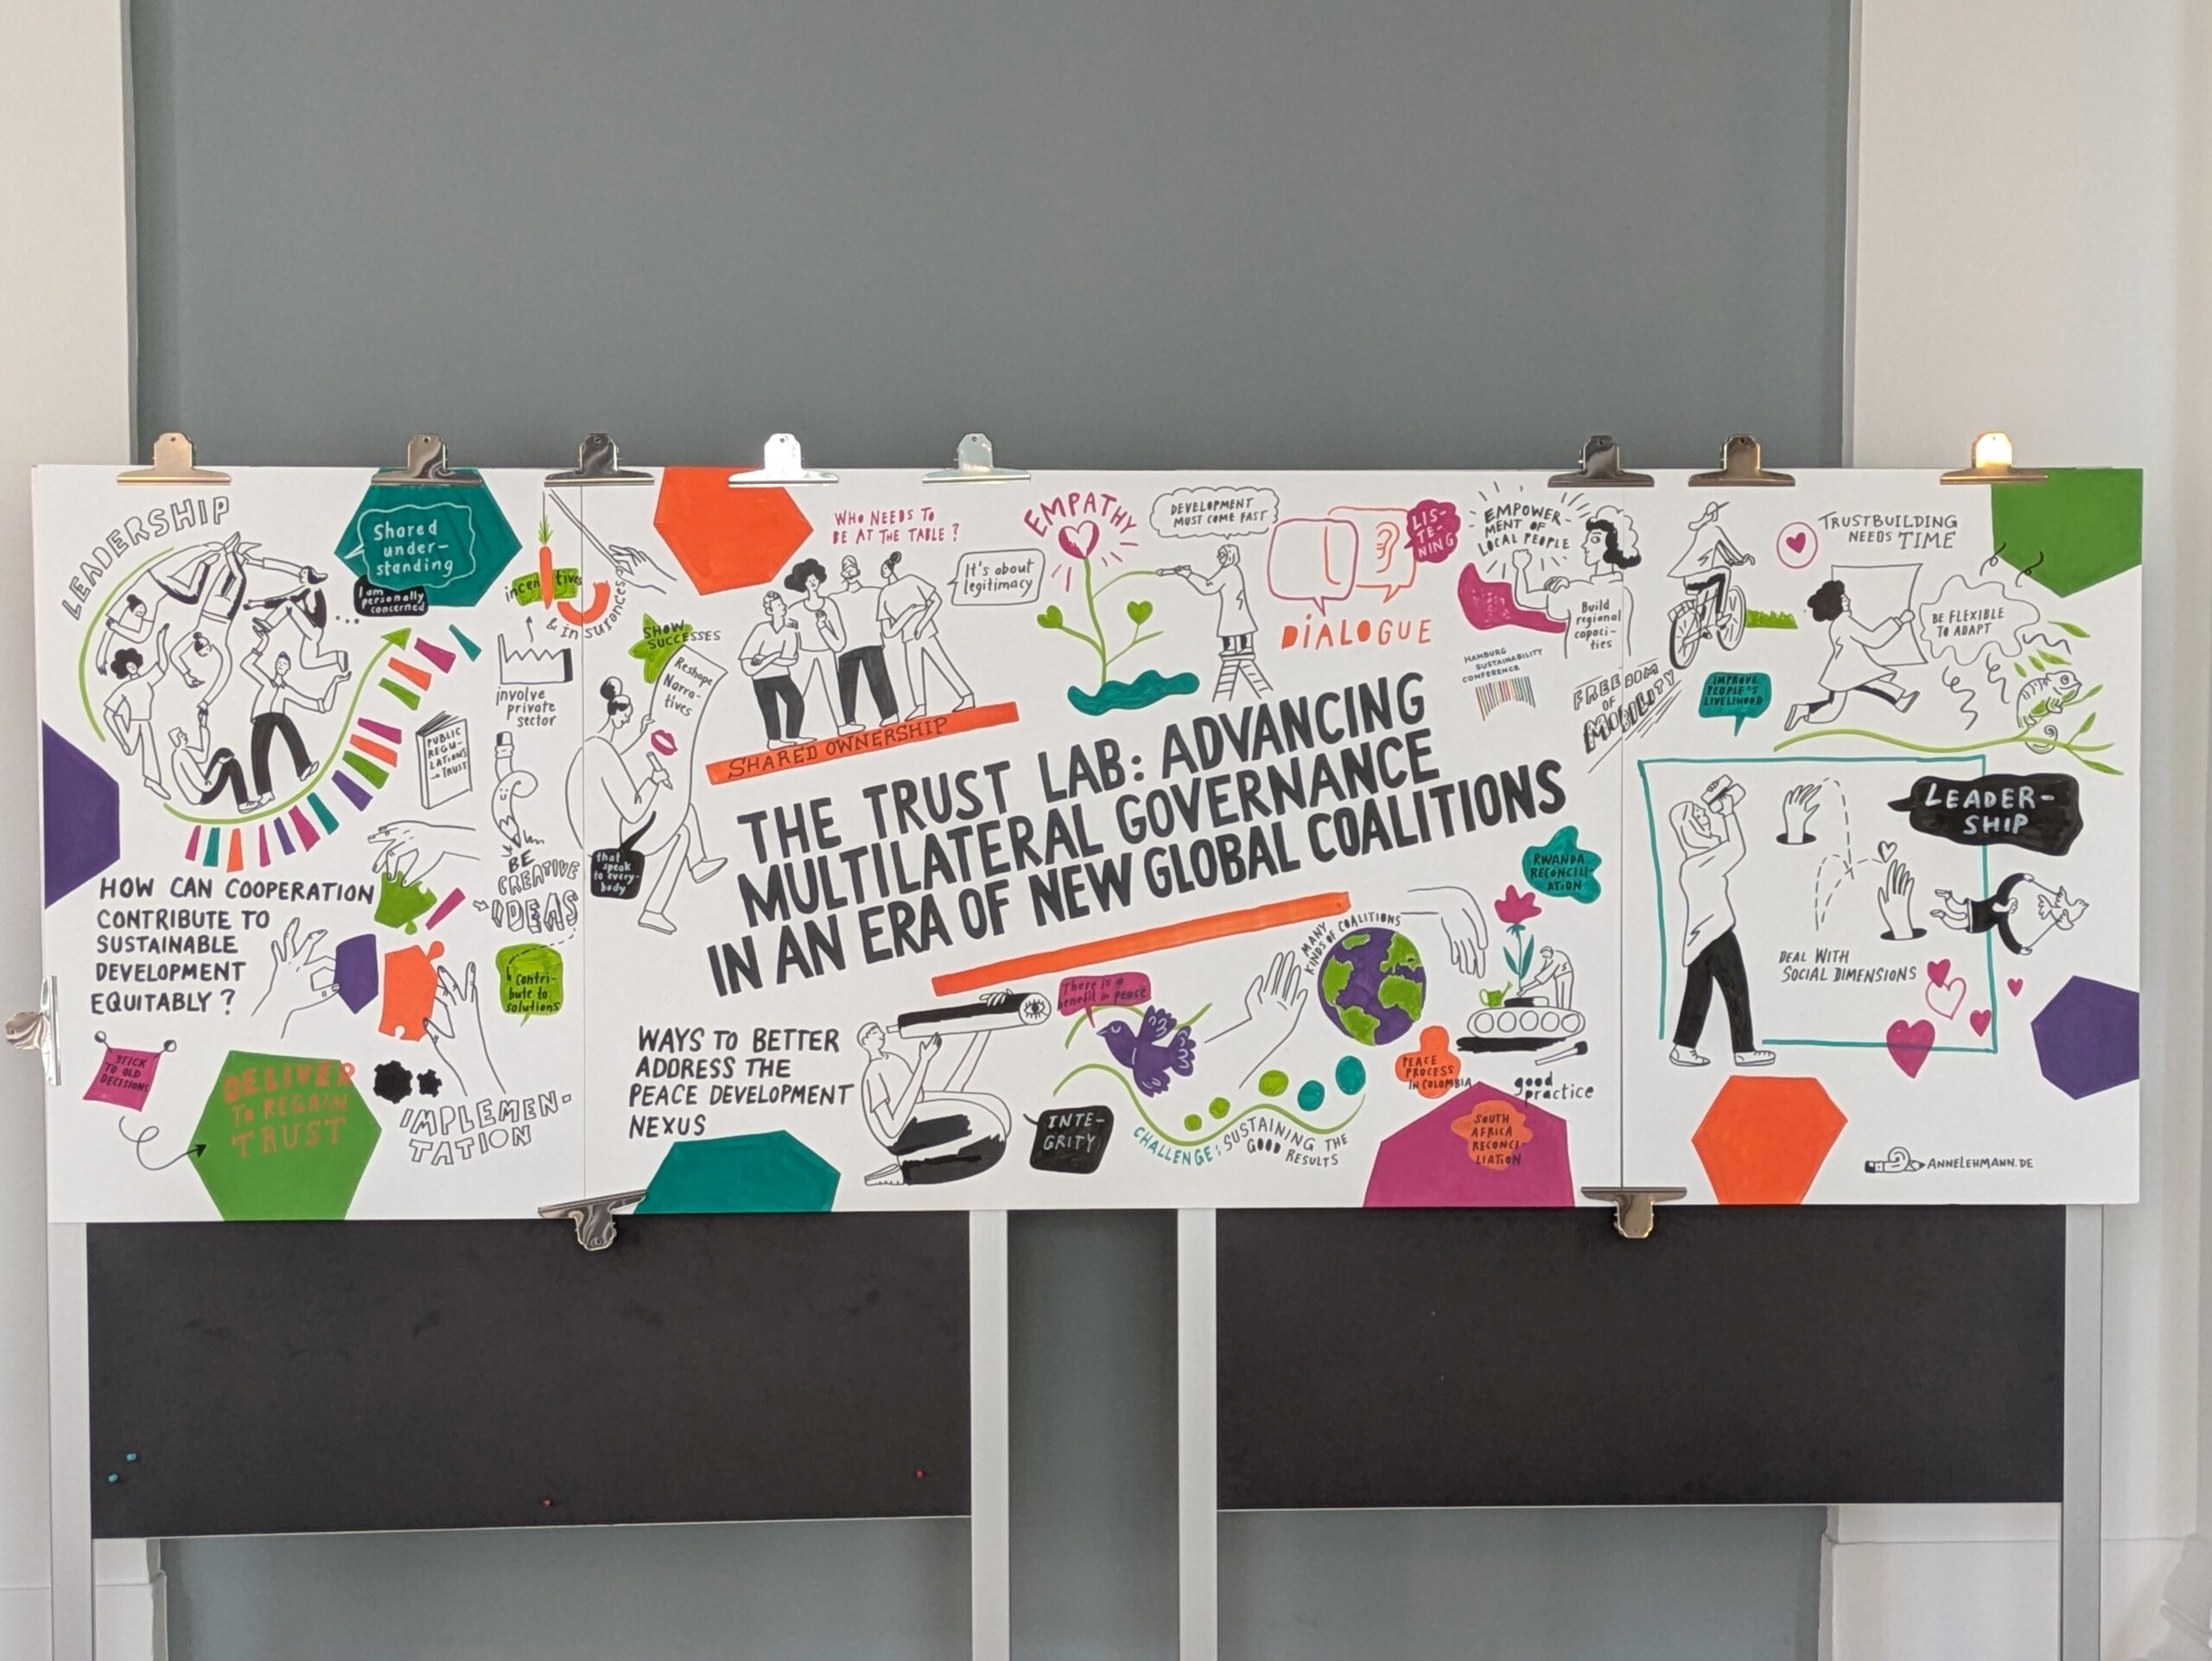 LEADERSHIP
Shared
under-
standing
I am
personally
concerned
incentives
& insurances
involve
private
sector
PUBLIC
REGU-
LATIONS
→ TRUST
BE
CREATIVE
IDEAS
Contri-
bute to
solutions
HOW CAN COOPERATION
CONTRIBUTE TO
SUSTAINABLE
DEVELOPMENT
EQUITABLY ?
STICK
TO OLD
DECISIONS
DELIVER
TO REGAIN
TRUST
IMPLEMEN-
TATION
SHOW
SUCCESSES
Reshape
Narra-
tives
that
speak
to every-
body
WHO NEEDS TO
BE AT THE TABLE ?
It's about
legitimacy
SHARED OWNERSHIP
EMPATHY
DEVELOPMENT
MUST COME FAST
LIS-
TE-
NING
DIALOGUE
EMPOWER-
MENT OF
LOCAL PEOPLE
Build
regional
capaci-
ties
HAMBURG
SUSTAINABILITY
CONFERENCE
THE TRUST LAB: ADVANCING
MULTILATERAL GOVERNANCE
IN AN ERA OF NEW GLOBAL COALITIONS
WAYS TO BETTER
ADDRESS THE
PEACE DEVELOPMENT
NEXUS
INTE-
GRITY
There is a
benefit in peace
CHALLENGE: SUSTAINING THE
GOOD RESULTS
MANY
KINDS OF COALITIONS
RWANDA
RECONCILI-
ATION
PEACE
PROCESS
IN COLOMBIA
good
practice
SOUTH
AFRICA
RECONCI-
LIATION
FREEDOM
OF
MOBILITY
IMPROVE
PEOPLE'S
LIVELIHOOD
TRUSTBUILDING
NEEDS TIME
BE FLEXIBLE
TO ADAPT
LEADER-
SHIP
DEAL WITH
SOCIAL DIMENSIONS
ANNELEHMANN.DE